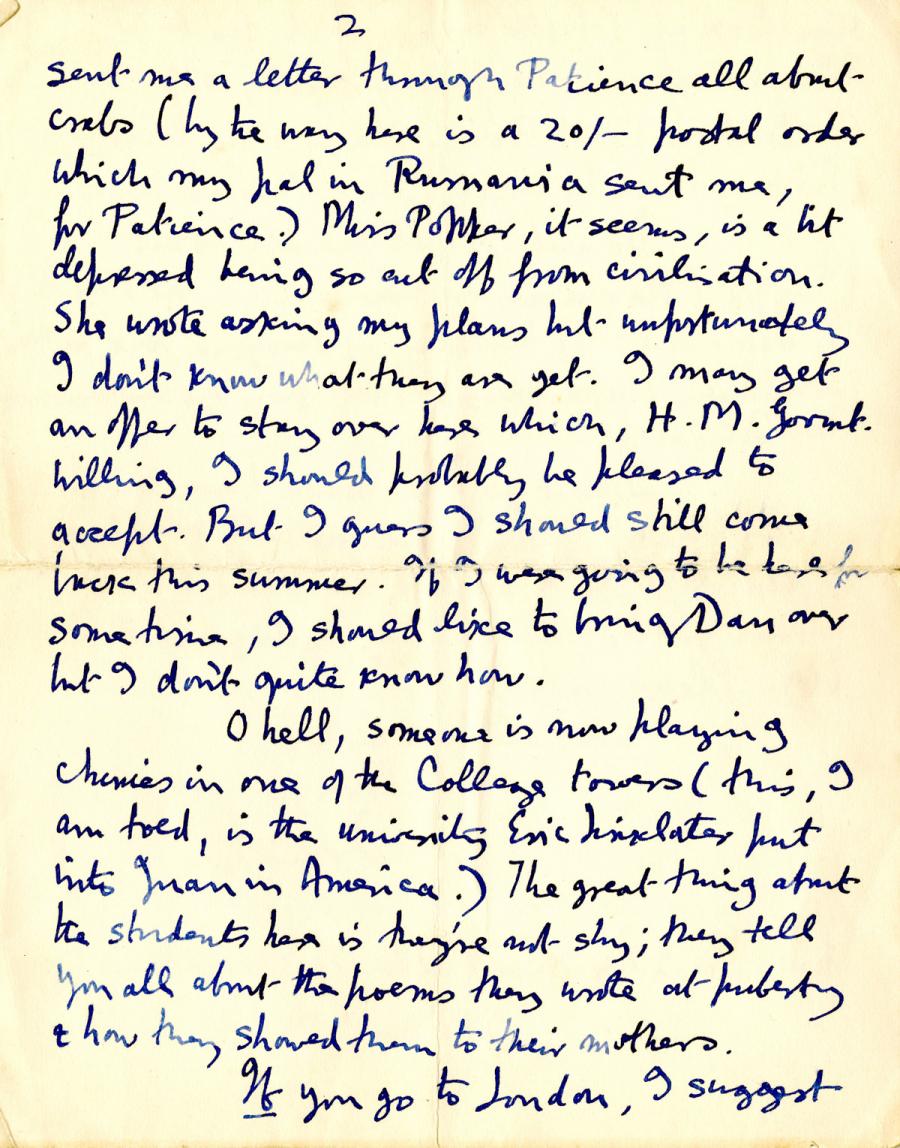 2
sent me a letter through Patience all about
crabs (by the way here is a 20/- postal order
which my pal in Rumania sent me,
for Patience.) Miss Popper, it seems, is a bit
depressed being so cut off from civilisation.
She wrote asking my plans but unfortunately
I don't know what they are yet. I may get
an offer to stay over here which, H.M. Govmt.
willing, I should probably be pleased to
accept. But I guess I should still come
back this summer. If I were going to be here for
some time, I should like to bring Dan over
but I don't quite know how.
O hell, someone is now playing
chimes in one of the College towers (this, I
am told, is the university Eric Linklater put
into Juan in America.) The great thing about
the students here is they're not shy; they tell
you all about the poems they wrote at puberty
& how they showed them to their mothers.
If you go to London, I suggest